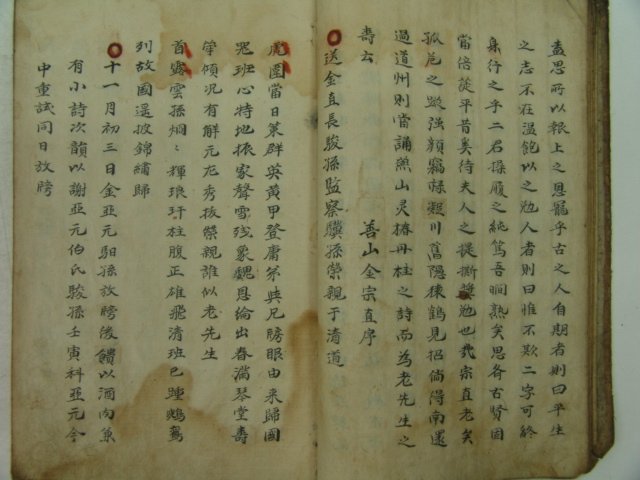 盍思所以報上之恩寵乎古之人自期者則曰平生
之志不在溫飽以之勉人者則曰惟不欺二字可終
身行之乎二君操履之純篤吾嗣熟矣思吾古賢因
當倍蓰平昔奚待夫人之提撕奬勉也哉宗直老矣
孤危之蹤强顔竊祿頖川萬隱棟鶴見招倘得南還
過道州則當誦熊山灵椿丹桂之詩而為老先生之
壽云
善山金宗直序
送金直長駿孫監察驥孫榮親于清道
虎圍當日策群英黃甲登庸弟與兄膀眼由來歸國
器班心特地振家聲雪殘象魏恩綸出春滿琴堂壽
斝傾況有解元尤秀拔榮親誰似老先生
首露雲孫烱〻輝琅玕柱腹正雄飛清班已踵鵷鸞
列故國遥披錦繡歸
十一月初三日金亞元馹孫放膀後饋以酒肉兼
有小詩次韻以謝亞元伯氏駿孫壬寅科亞元今
中重試同日放膀